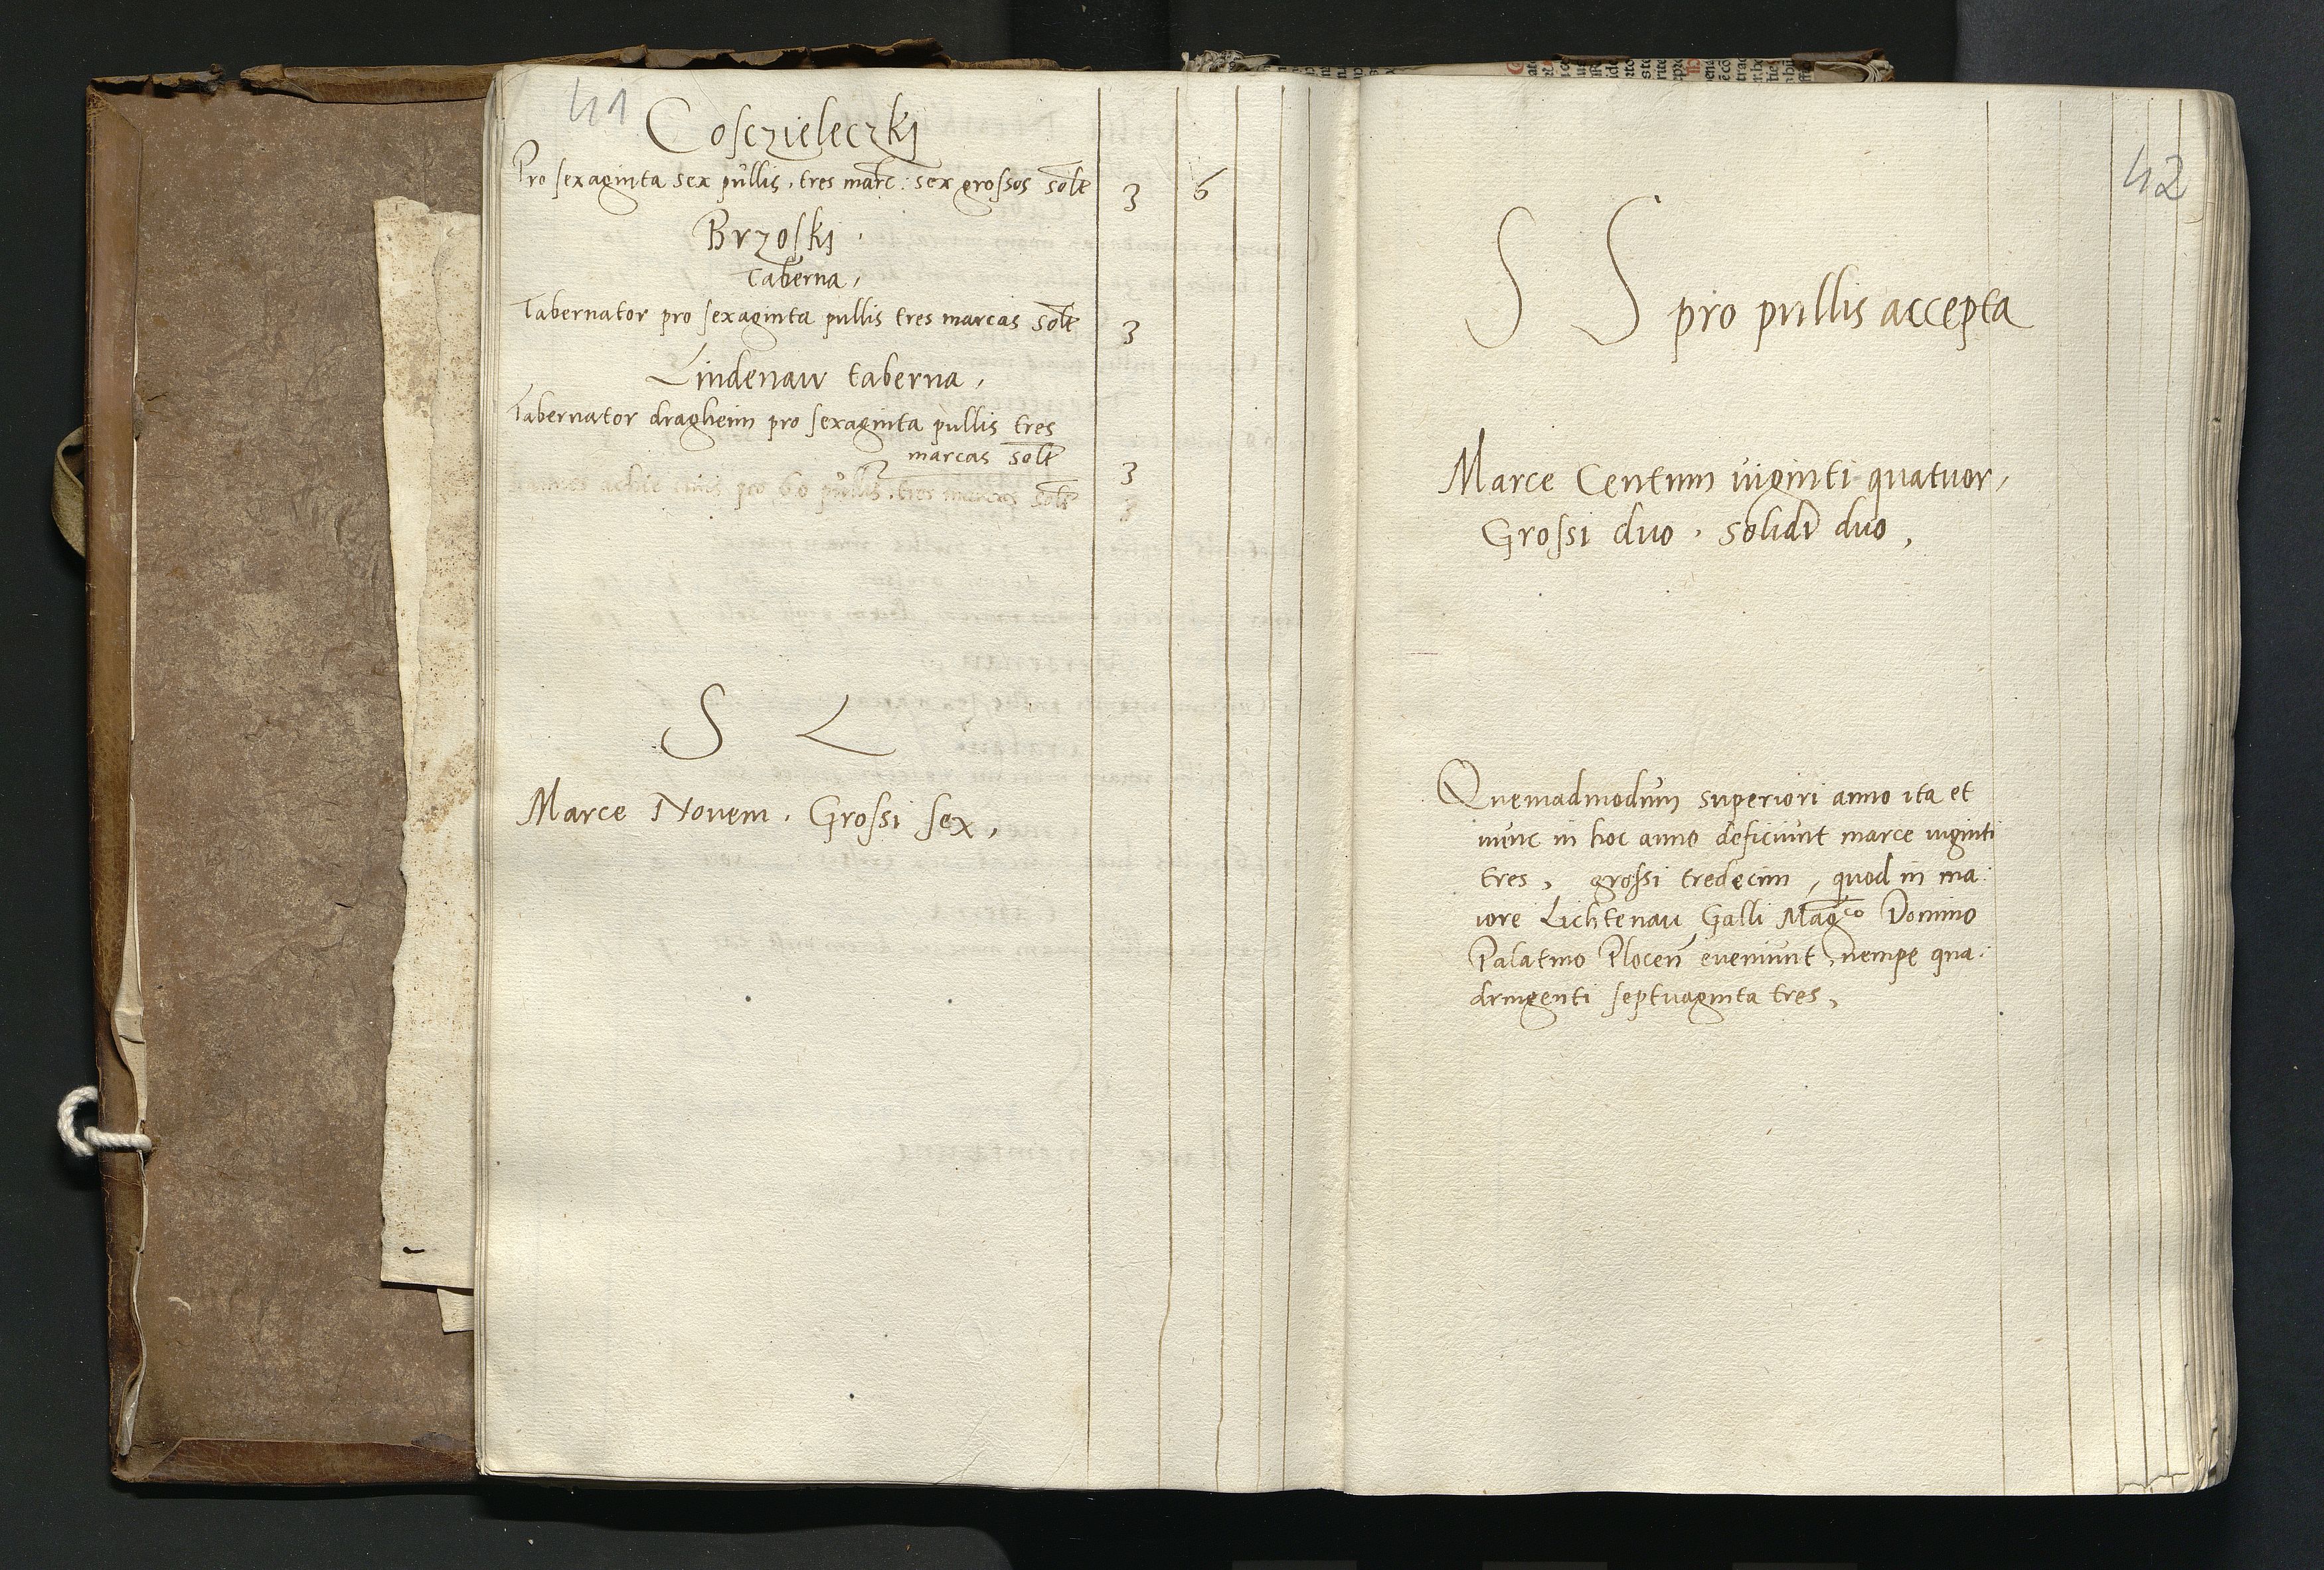 41
Cosczieleczkj
Pro sexaginta sex pullis, tres marc: sex grossos solt 3 6
Brzoskj.
Taberna,
Tabernator pro sexaginta pullis tres marcas solt 3
Lindenaw taberna,
Tabernator dragheim pro sexaginta pullis tres
marcas solt 3
pro 60 pullis, tres marcas solt 3
S L
Marce Novem. Grossi sex,
42
S S pro pullis accepta
Marce Centum viginti quatuor,
Grossi duo. Solidi duo,
Quemadmodum superiori anno ita et
nunc in hoc anno deficiunt marce viginti
tres, grossi tredecim, quod in ma:
iore Lichtenau Galli Mag̅co Domino
Palatino Plocen̅ eveniunt, nempe qua:
dringenti septuaginta tres,